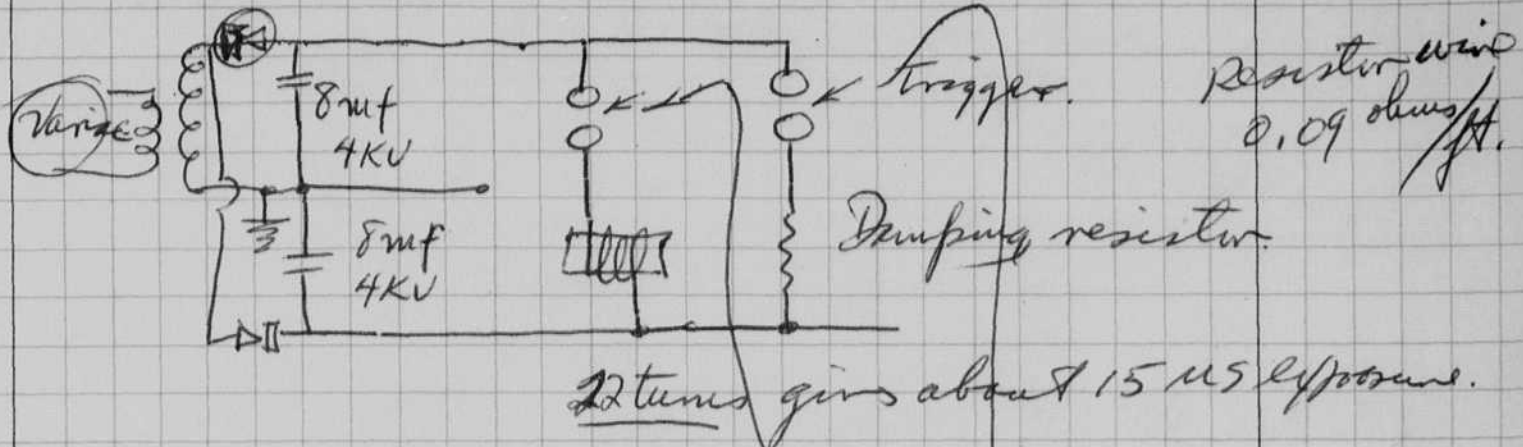 Variac
8mf
4KV
trigger.
Resistor wire
0.09 ohms/ft.
8mf
4KV
Damping resistor.
22 turns gives about 15 us exposure.